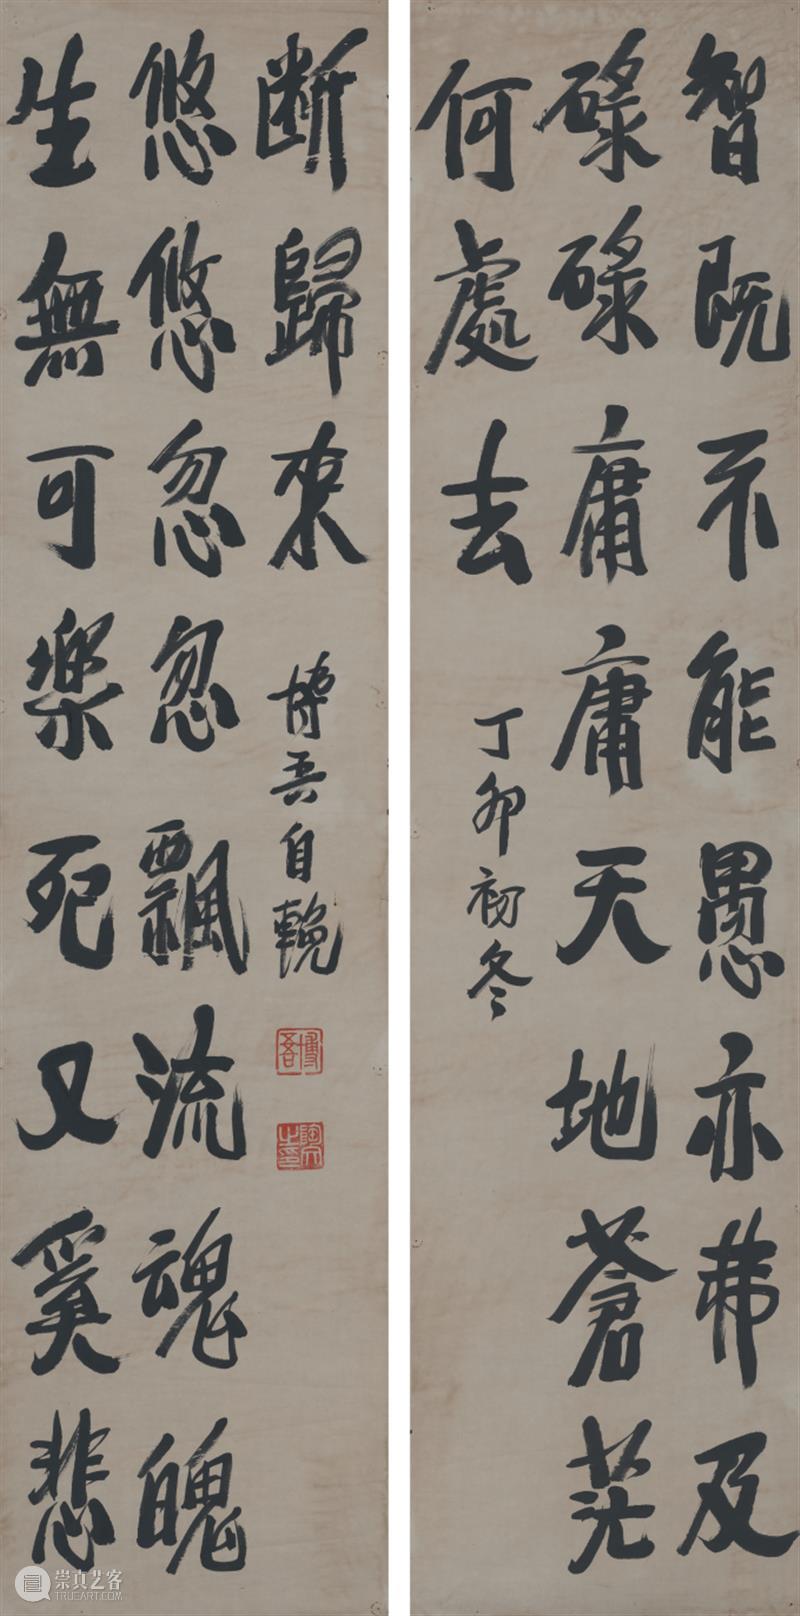 智既不能愚亦弗及
碌碌庸庸天地蒼茫
何處去
丁卯初冬
生無可樂死又奚悲
悠悠忽忽飄流魂魄
断歸來
博吾自輓
博吾
崇真艺客
TRUEART.COM